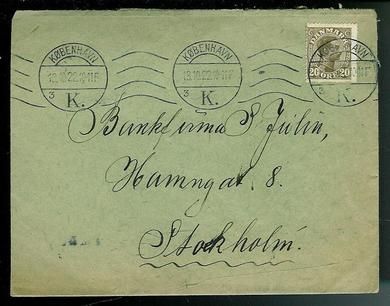 KØBENHAVN
13.10.22.10-11F
3 K.
KØBENHAVN
13.10.22.10-11F
3 K.
DANMARK
20 ØRE 20
K.
Bankfirma S. Julin,
Hamngat. 8.
Stockholm.